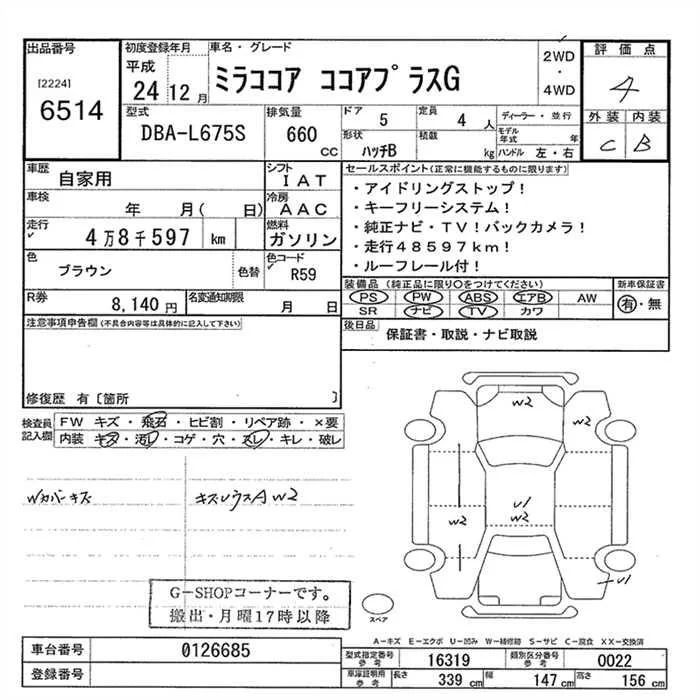 出品番号
[2224]
6514
初度登録年月
平成
24 12月
車名・グレード
ミラココア ココアプラスG
2WD
・
4WD
評価点
4
外装 内装
C B
型式
DBA-L675S
排気量
660
CC
ドア
5
定員
4 人
形状
ハッチB
積載
kg
ディーラー・並行
モデル年式 年
ハンドル 左・右
車歴
自家用
シフト
IAT
車検
年 月( 日)
冷房
AAC
走行
4万8千597 km
燃料
ガソリン
色
ブラウン
色替
色コード
R59
R券
8,140円
名変通知期限
月 日
セールスポイント(正常に機能するものに限ります)
・アイドリングストップ!
・キーフリーシステム!
・純正ナビ・TV!バックカメラ!
・走行48597km!
・ルーフレール付!
装備品(純正品に限り○をつけてください)
PS PW ABS エアB AW
SR ナビ TV カワ
新車保証書
有・無
後日品
保証書・取説・ナビ取説
注意事項申告欄(不具合内容等は具体的に記入して下さい)
修復歴 有〔箇所 〕
検査員
記入欄
FW キズ・飛石・ヒビ割・リペア跡・×要
内装 キズ・汚レ・コゲ・穴・スレ・キレ・破レ
Wカバーキズ
キズレウスA W2
W2
W2
W2
U1
W2
U1
スペア
G-SHOPコーナーです。
搬出・月曜17時以降
A-キズ E-エクボ U-凹み W-補修跡 S-サビ C-腐食 XX-交換済
車台番号
0126685
登録番号
型式指定番号
参考
16319
類別区分番号
参考
0022
車庫証明用
参考
長さ
339 cm
幅
147 cm
高さ
156 cm